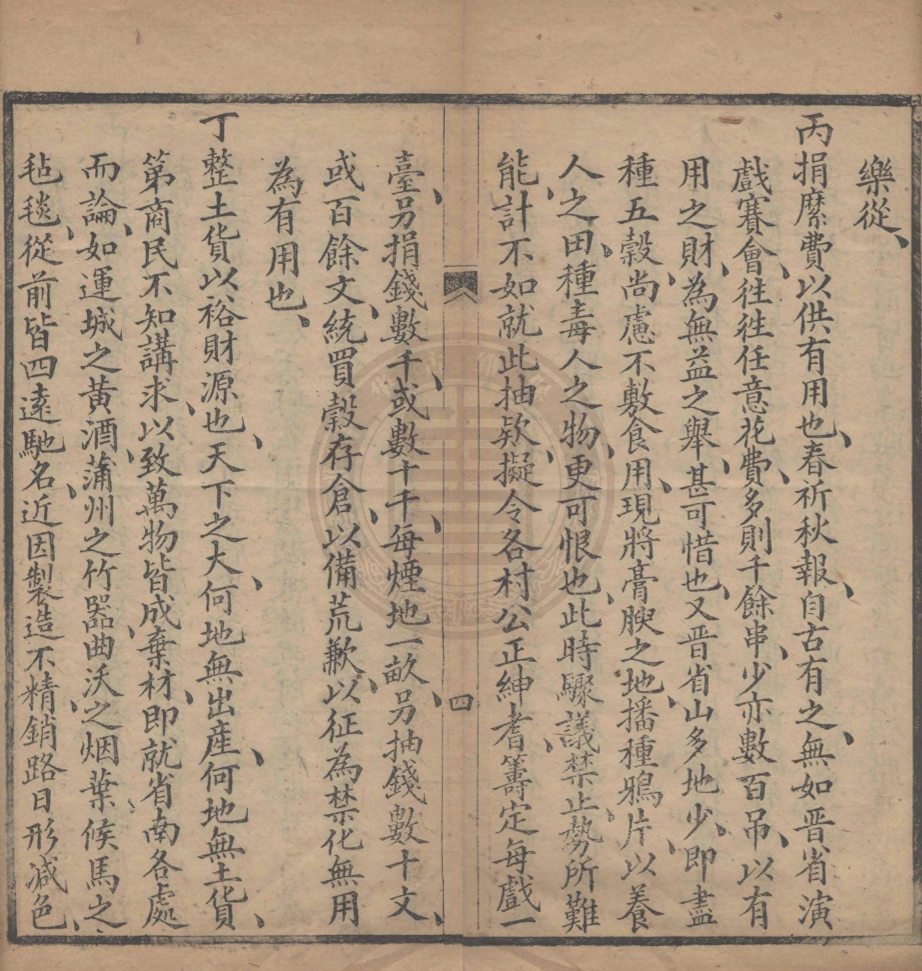 樂從、
丙捐縻費以供有用也、春祈秋報、自古有之、無如晋省演
戲賽會、徃徃任意花費、多則千餘串、少亦數百吊、以有
用之財、為無益之舉、甚可惜也、又晋省山多地少、即盡
種五穀、尚慮不敷食用、現將膏腴之地、播種鴉片、以養
人之田、種毒人之物、更可恨也、此時驟議禁止、勢所難
能、計不如就此抽欵、擬令各村公正紳耆、籌定每戲一
四
臺、另捐錢數千、或數十千、每煙地一畝、另抽錢數十文、
或百餘文、統買穀存倉、以備荒歉、以征為禁、化無用
為有用也、
丁整土貨以裕財源也、天下之大、何地無出產、何地無土貨、
第商民不知講求、以致萬物皆成棄材、即就省南各處
而論、如運城之黃酒、蒲州之竹器、曲沃之烟葉、候馬之
毡毯、從前皆四遠馳名、近因製造不精、銷路日形減色、